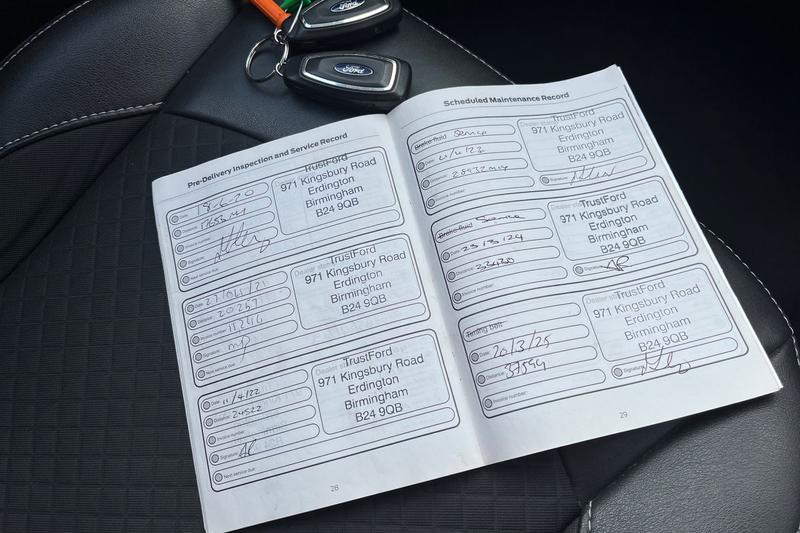 Ford
Ford
Pre-Delivery Inspection and Service Record
Date: 18-6-20
Distance:
Invoice number:
Signature:
Next service due:
TrustFord
971 Kingsbury Road
Erdington
Birmingham
B24 9QB
Date: 27/04/21
Distance: 20267
Invoice number: 11246
Signature: MP
Next service due:
Dealer stamp
TrustFord
971 Kingsbury Road
Erdington
Birmingham
B24 9QB
Date: 11/4/22
Distance: 24522
Invoice number:
Signature: AP
Next service due:
TrustFord
971 Kingsbury Road
Erdington
Birmingham
B24 9QB
28
Scheduled Maintenance Record
Brake fluid Service
Date:
Distance: 28932
Invoice number:
TrustFord
971 Kingsbury Road
Erdington
Birmingham
B24 9QB
Signature:
Brake fluid Service
Date: 23/3/24
Distance: 33430
Invoice number:
TrustFord
971 Kingsbury Road
Erdington
Birmingham
B24 9QB
Signature: AP
Timing belt
Date: 20/3/25
Distance: 37594
Invoice number:
Dealer stamp
TrustFord
971 Kingsbury Road
Erdington
Birmingham
B24 9QB
Signature:
29